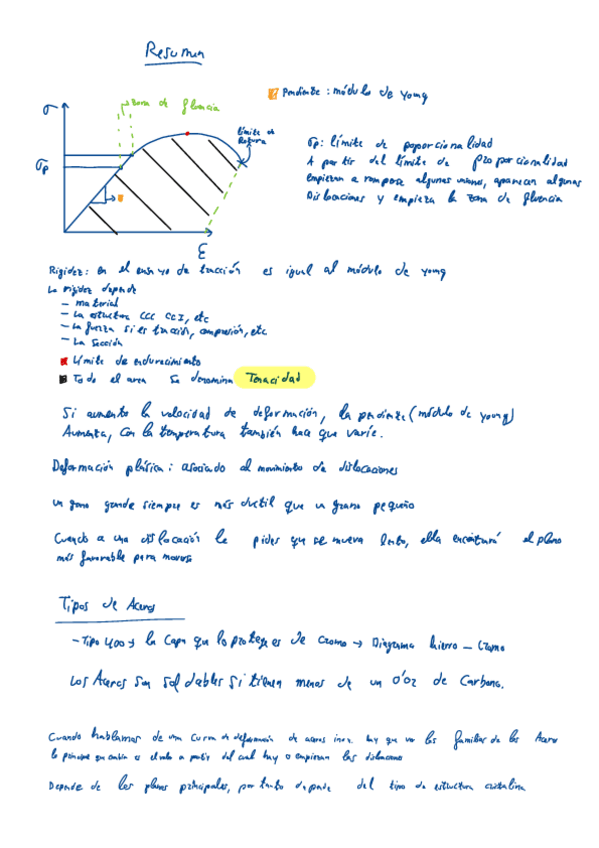 Resumen
zona de fluencia
Pendiente : módulo de young
σ
límite de
Rotura
σp
σp: límite de poporcionalidad
A partir del límite de proporcionalidad
empiezan a romperse algunas uniones, aparecen algunas
Dislocaciones y empieza la zona de fluencia
ε
Rigidez: en el ensayo de tracción es igual al módulo de young
La rigidez depende
- material
- La estructura CCC CCI, etc
- La fuerza si es tracción, compresión, etc
- La sección
Límite de endurecimiento
Todo el area se denomina Tenacidad
Si aumento la velocidad de deformación, la pendiente (módulo de young)
Aumenta, con la temperatura también hace que varíe.
Deformación plástica: asociado al movimiento de dislocaciones
un grano grande siempre es más ductil que un grano pequeño
Cuando a una dislocación le pides que se mueva lento, ella encontrará el plano
más favorable para moverse
Tipos de Aceros
- Tipo 400 → la capa que lo protege es de cromo → Diagrama hierro - Cromo
Los Aceros son soldables si tienen menos de un 0'02 de Carbono.
Cuando hablamos de una curva de deformación de aceros inox. hay que ver las familias de los Aceros
lo principal que cambia es el valor a partir del cual hay o empiezan las dislocaciones
Depende de los planos principales, por tanto depende del tipo de estructura cristalina